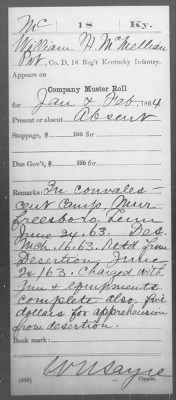 Mc 18 Ky.
William H. McMellian
Pvt, Co. D, 18 Reg't Kentucky Infantry.
Appears on
Company Muster Roll
for Jan & Feb, 1864
Present or absent Absent
Stoppage, $ 100 for
Due Gov't, $ 100 for
Remarks: In convales-
cent Camp Mur-
freesboro, Tenn
June 24. 63. Des.
Mch 16. 63. Retd from
Desertion June
24/63. Charged with
Gun & equipments
complete also, five
dollars for apprehension
from desertion.
Book mark:
(358) Copyist.